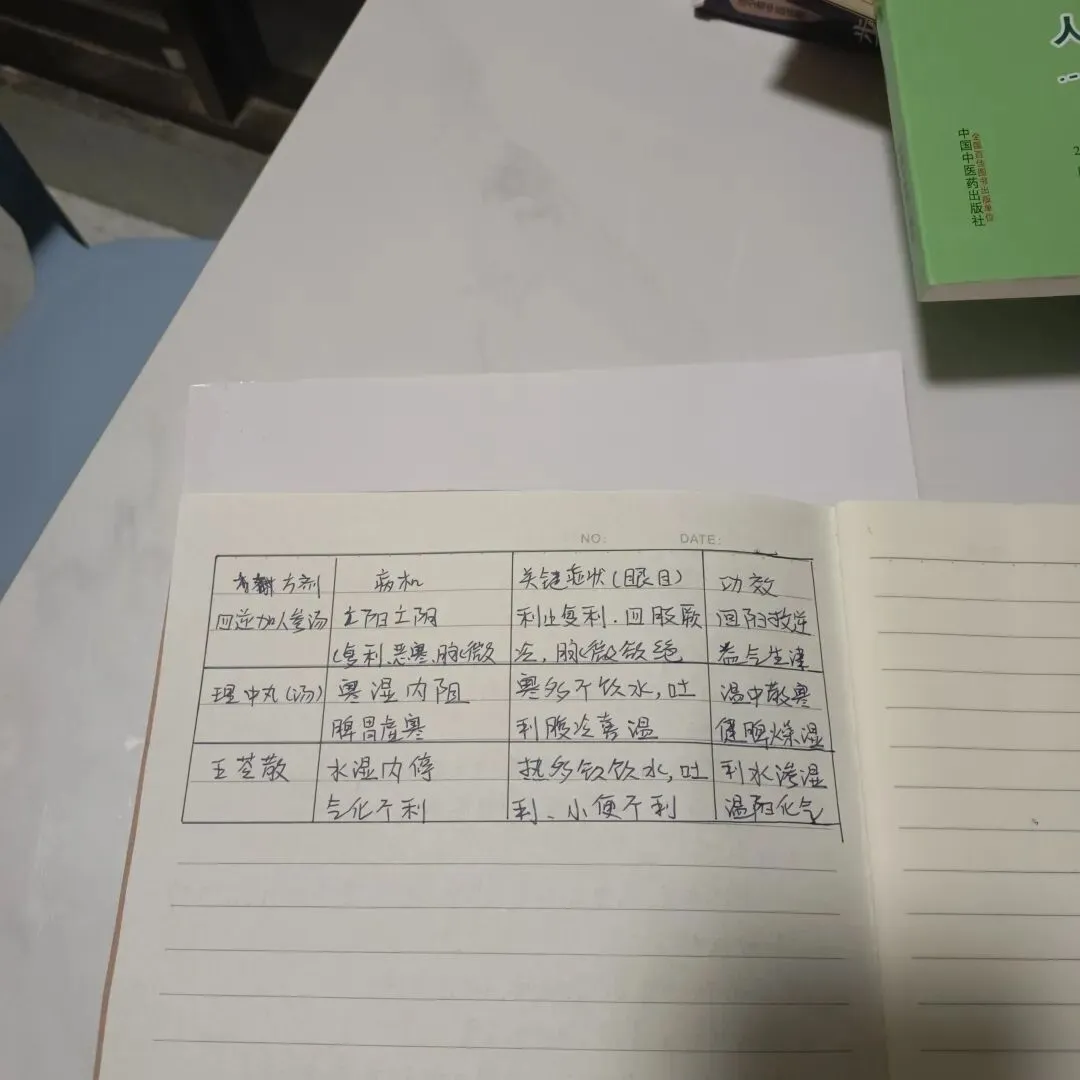 人
中国中医药出版社
全国百佳图书出版单位
NO: DATE:
方剂 病机 关键症状(眼目) 功效
四逆加人参汤 亡阳亡阴 利止复利.四肢厥 回阳救逆
(复利、恶寒、脉微 冷,脉微欲绝 益气生津
理中丸(汤) 寒湿内阻 寒多不饮水,吐 温中散寒
脾胃虚寒 利腹冷喜温 健脾燥湿
五苓散 水湿内停 热多欲饮水,吐 利水渗湿
气化不利 利、小便不利 温阳化气